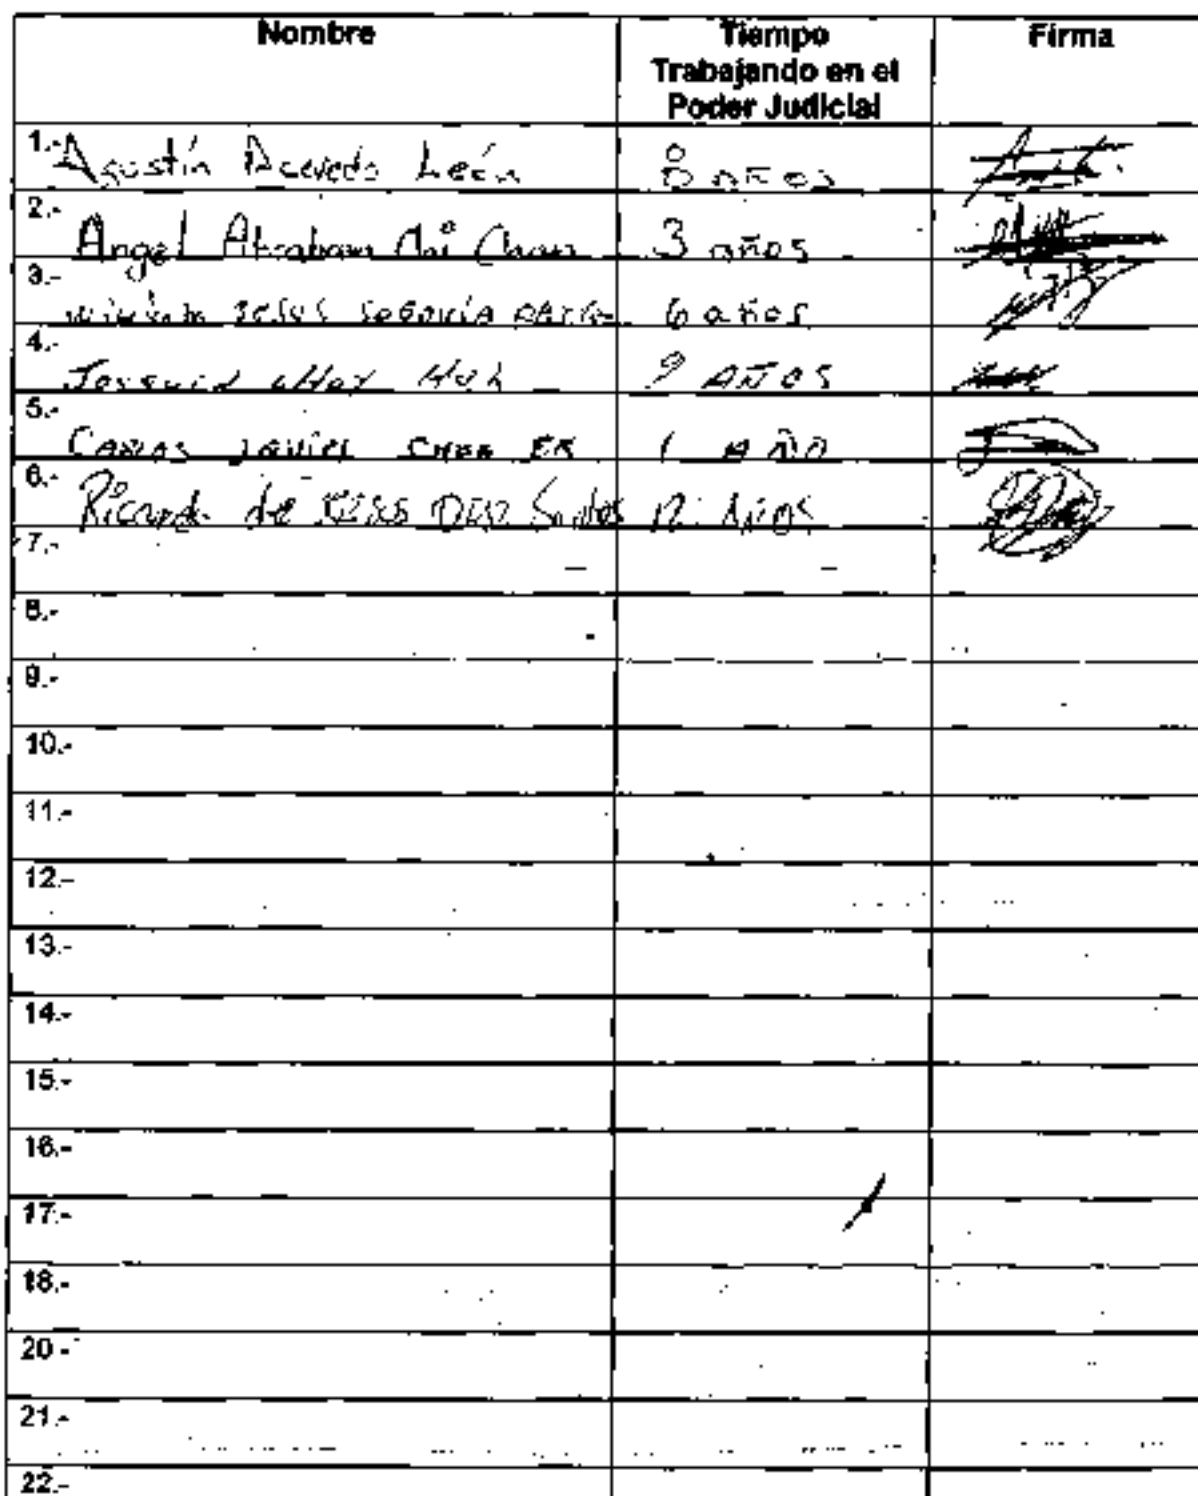 Nombre Tiempo Trabajando en el Poder Judicial Firma
1.- Agustín Acevedo León 8 años
2.- Angel Abraham Chi Chan 3 años
3.- William Jesus Segovia 6 años
4.- 9 AÑOS
5.- Carlos Javier EK 1 AÑO
6.- Ricardo de Jesus Diaz 12 Años
7.-
8.-
9.-
10.-
11.-
12.-
13.-
14.-
15.-
16.-
17.-
18.-
20.-
21.-
22.-